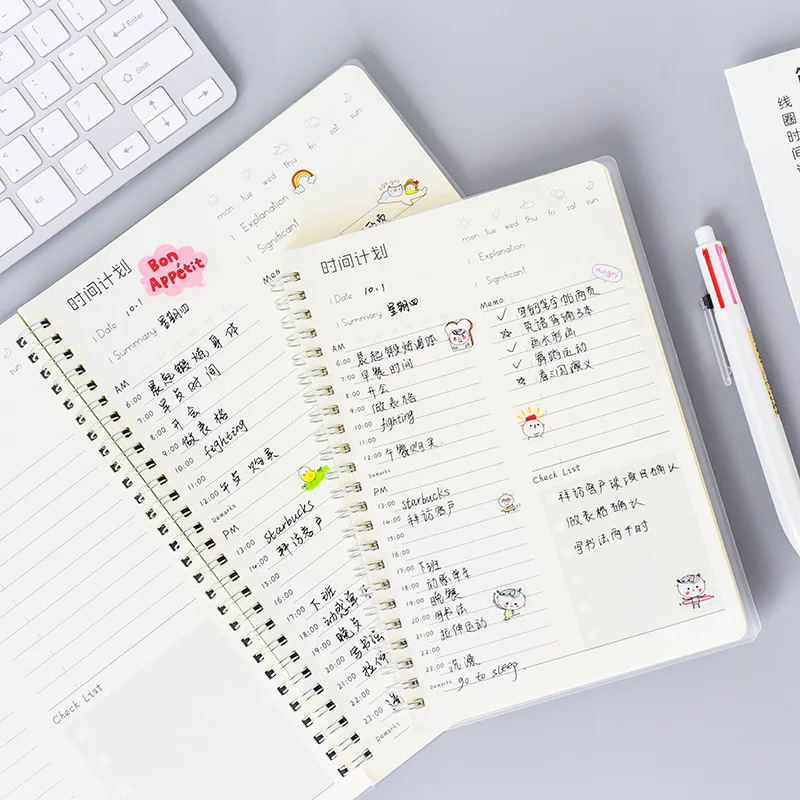 Enter
Shift
Ctrl
Alt
mon tue wed thu fri sat sun
Explanation
Significant
时间计划
Bon
Appétit
Date 10.1
Summary 星期四
Memo
AM
6:00 晨起锻炼身体
7:00 早点时间
8:00 开会
9:00 做表格
10:00 fighting
11:00
12:00 午点 购买
Remarks
PM
13:00 starbucks
14:00 拜访客户
15:00
16:00
17:00 下班
18:00 动感单车
19:00 晚点
20:00 写书法
21:00 拉伸
22:00
23:00
Remarks
Check List
mon tue wed thu fri sat sun
Explanation
Significant
时间计划
Hungry
Date 10.1
Summary 星期四
AM
6:00 晨起锻炼身体
7:00 早餐时间
8:00 开会
9:00 做表格
10:00 fighting
11:00
12:00 午餐购买.
Remarks
PM
13:00 starbucks
14:00 拜访客户
15:00
16:00
17:00 下班
18:00 动感单车
19:00 晚餐
20:00 写书法
21:00 拉伸运动
22:00
23:00 沉淀
Remarks go to sleep.
Memo
✓ 写钢笔字帖两页
☆ 英语背诵3本
✓ 画水彩画
✓ 爵韵运动
☆ 看三国演义
Check List
拜访客户谈项目确认
做表格确认
写书法两个时
线圈时间